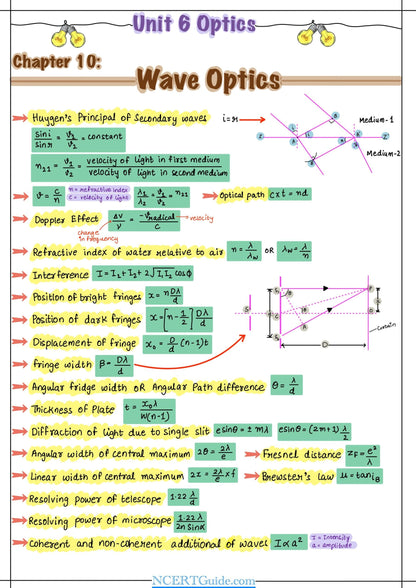 Unit 6 Optics
Chapter 10:
Wave Optics
Huygen's Principal of Secondary waves
i=r
Medium-1
Medium-2
sini/sinr = v₁/v₂ = constant
n₂₁ = v₁/v₂ = velocity of light in first medium/velocity of light in second medium
v = c/n
n = refractive index
c = velocity of light
λ₁/λ₂ = v₁/v₂ = n₂₁
Optical path c×t = nd
Doppler Effect Δν/ν = -Vradical/c
velocity
change in frequency
Refractive index of water relative to air n = λ/λw OR λw = λ/n
Interference I = I₁+I₂+2√I₁I₂ cosϕ
Position of bright fringes x = nDλ/d
Position of dark fringes x = [n-1/2] Dλ/d
Displacement of fringe x₀ = D/d (n-1)t
fringe width β = Dλ/d
D
Curtain
Angular fridge width OR Angular Path difference θ = λ/d
Thickness of Plate t = x₀λ/W(n-1)
Diffraction of light due to single slit esinθ = ± mλ esinθ = (2m+1) λ/2
Angular width of central maximum 2θ = 2λ/e
Fresnel distance ZF = e²/λ
Linear width of central maximum 2x = 2λ/e × f
Brewster's Law μ = taniB
Resolving power of telescope 1·22 λ/d
Resolving power of microscope 1·22 λ/2n Sinα
coherent and non-coherent additional of waves I ∝ a²
I = Intensity
a = amplitude
NCERTGuide.com